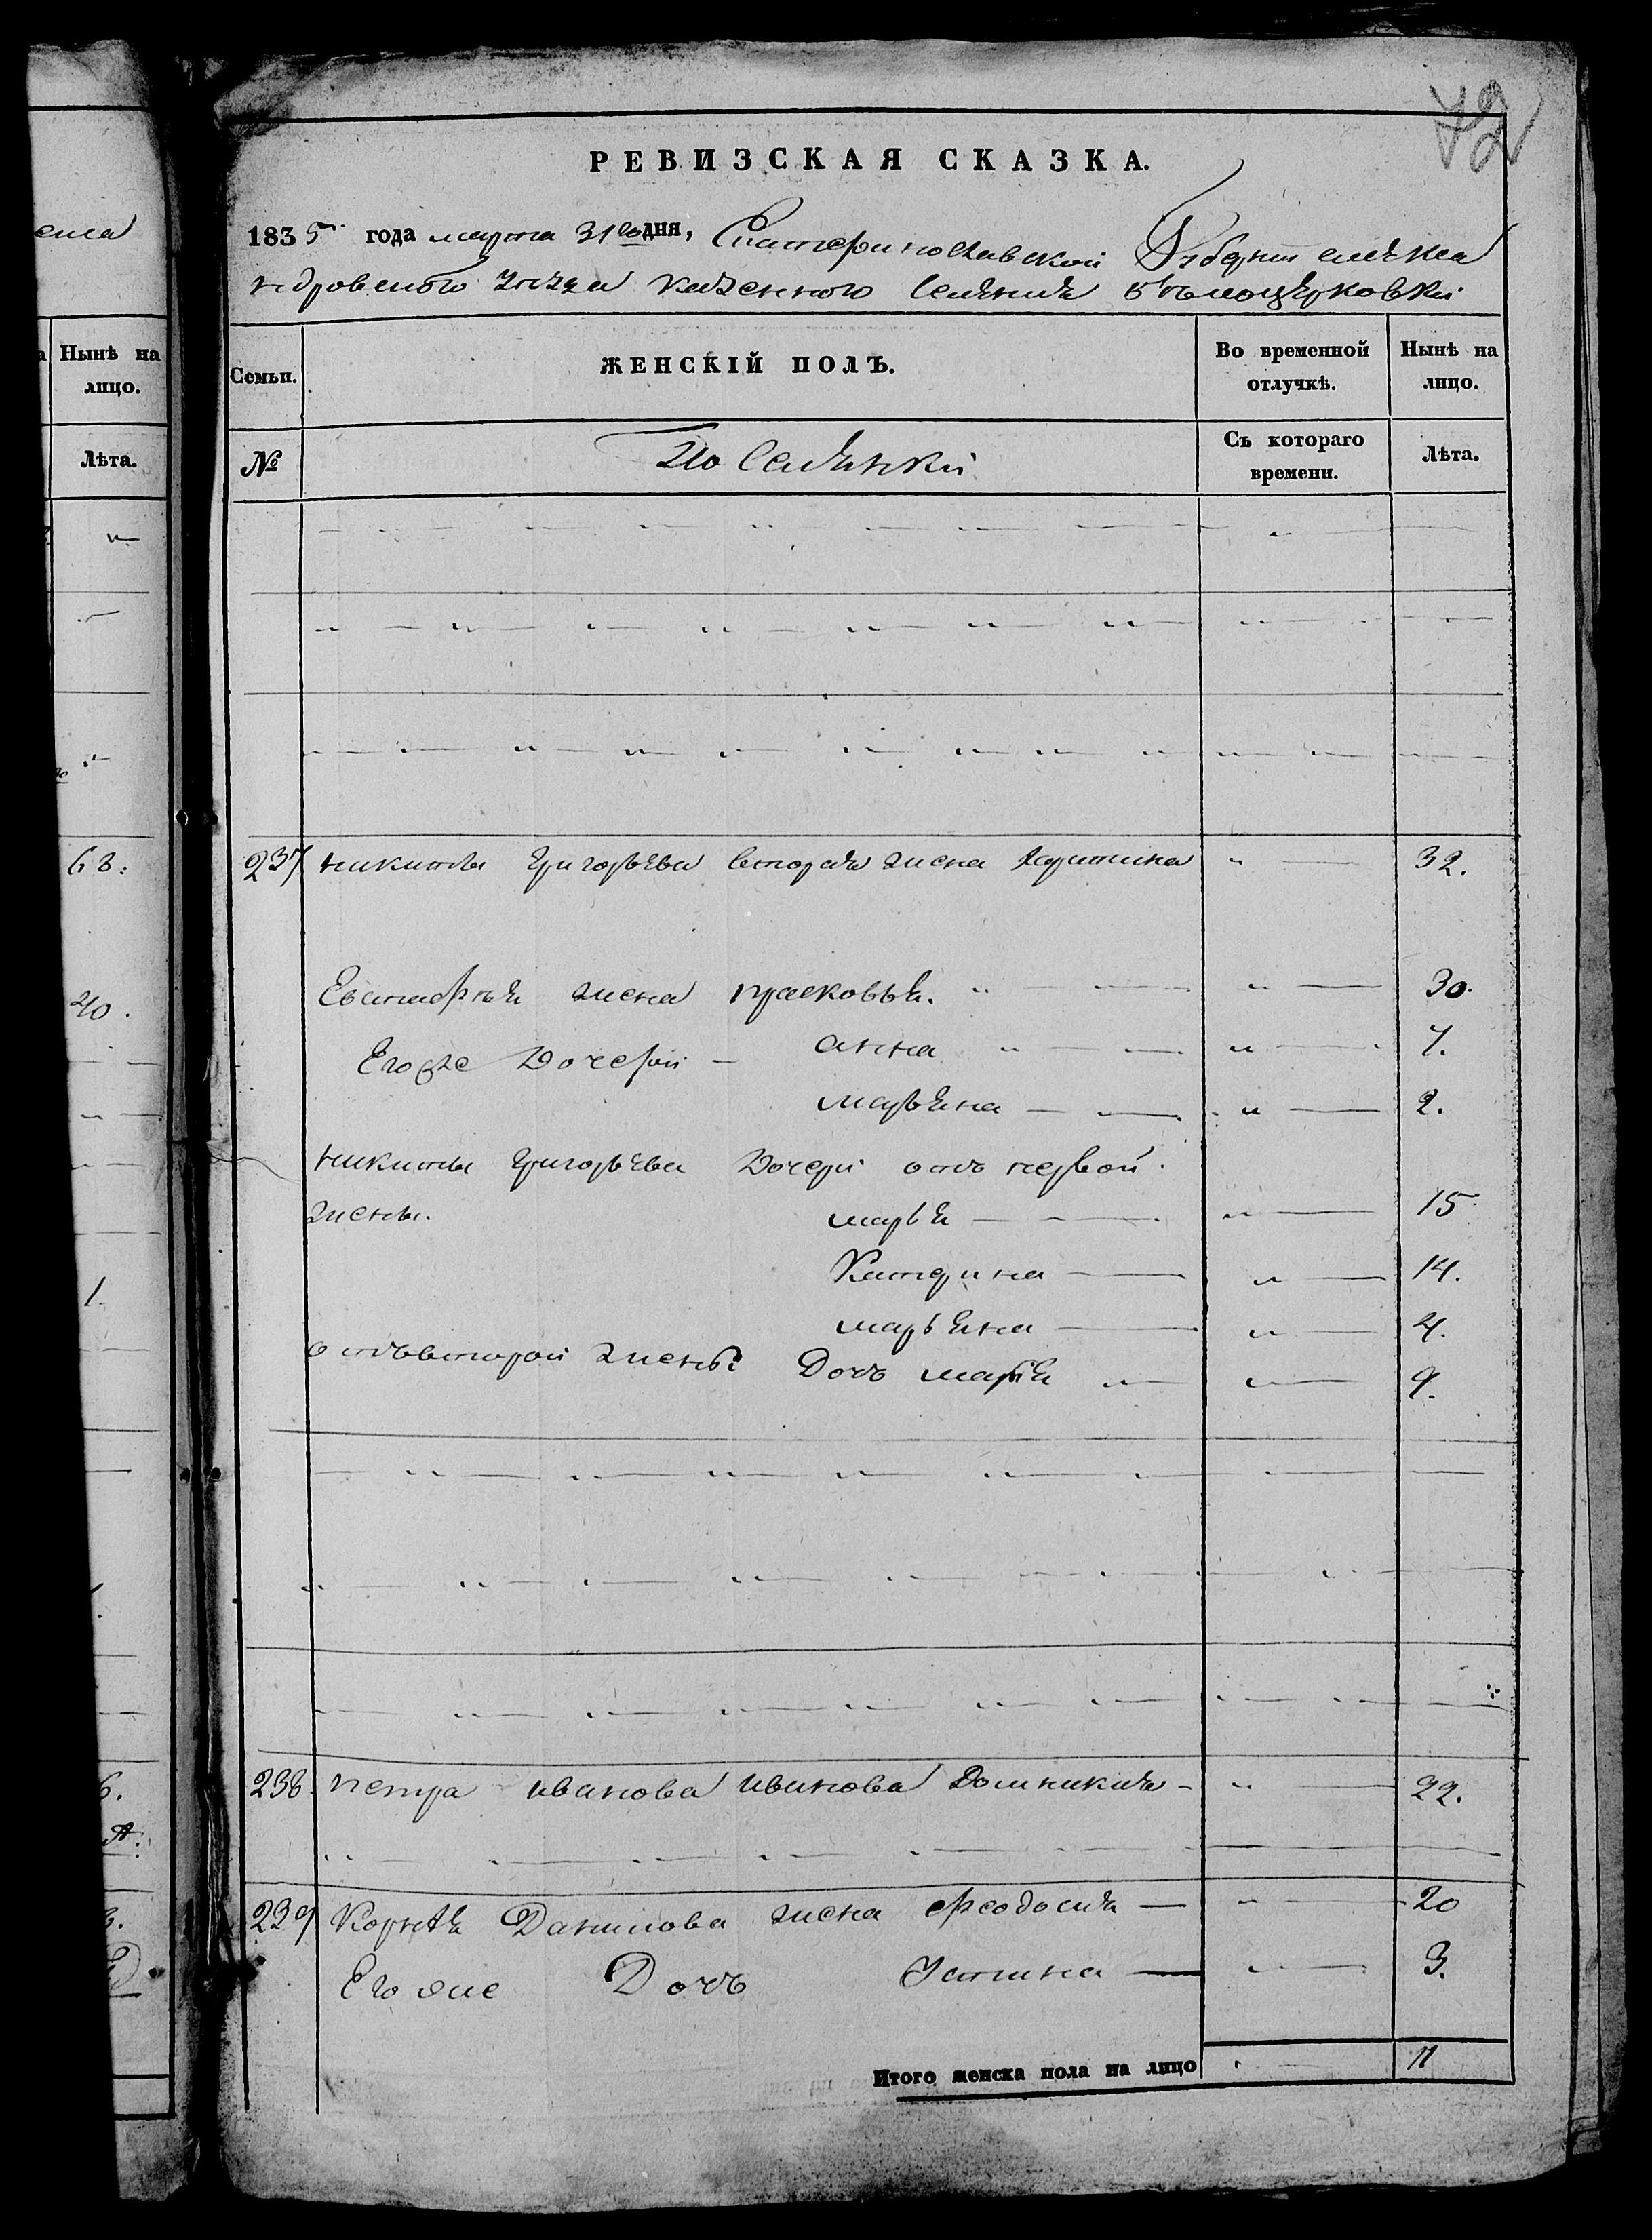 72
РЕВИЗСКАЯ СКАЗКА.
1835 года марта 31го дня, Екатеринославской Губернии Алекса
ндровского уезда казенного Селения Беломоцерковки
Семьи.
ЖЕНСКІЙ ПОЛЪ.
Во временной отлучкѣ.
Нынѣ на лицо.
№
Поселянки
Съ котораго времени.
Лѣта.
237 никиты григорьева вторая жена Харитина " — 32.
Евстафия жена прасковья. " — " — 30.
Егоже Дочери — анна " — " — 7.
марьяна — — " — 2.
никиты григорьева Дочери отъ первой
жены. марья — — " — 15
Катерина — " — 14.
марьяна — " — 4.
отъ второй жены Дочь марья " — " — 9.
238. петра иванова иванова Домникия - " — 22.
239 Корнея Данилова жена Феодосия — " — 20
Его же Дочь Устина — " — 3.
Итого женска пола на лицо 11
Нынѣ на лицо.
Лѣта.
68.
40.
1.